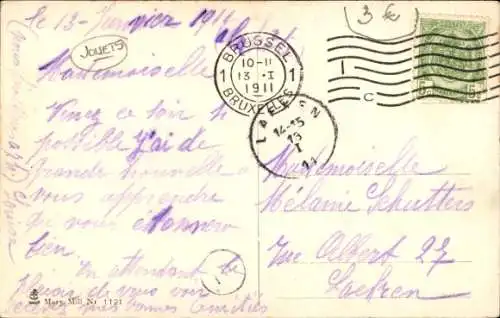 le 13 Janvier 1911
3 €
JOUETS
BRUSSEL
10-11
1 13 I 1
1911
BRUXELLES
I
C
5 5
LAEKEN
14-15
13
I
11
Mademoiselle
Venez ce soir si
possible J'ai de
grande nouvelle à
vous apprendre
qui vous étonnera
bien.
En attendant le
plaisir de vous voir
recevez mes bonnes amitiés
Mademoiselle
Mélanie Schutters
Rue Albert 27
Laeken
1
Mary Mill. Nr 1121